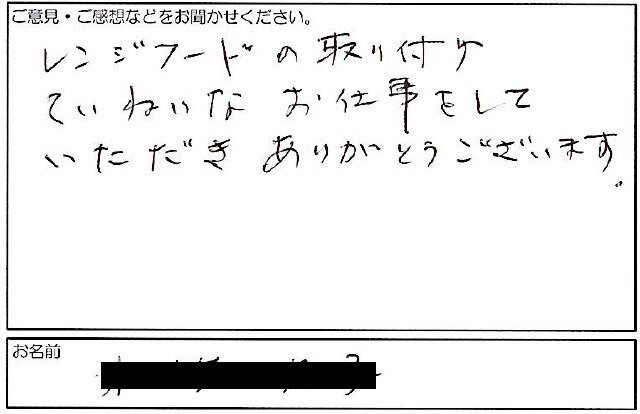 ご意見・ご感想などをお聞かせください。
レンジフードの取り付け
ていねいな お仕事をして
いただき ありがとうございます。
お名前